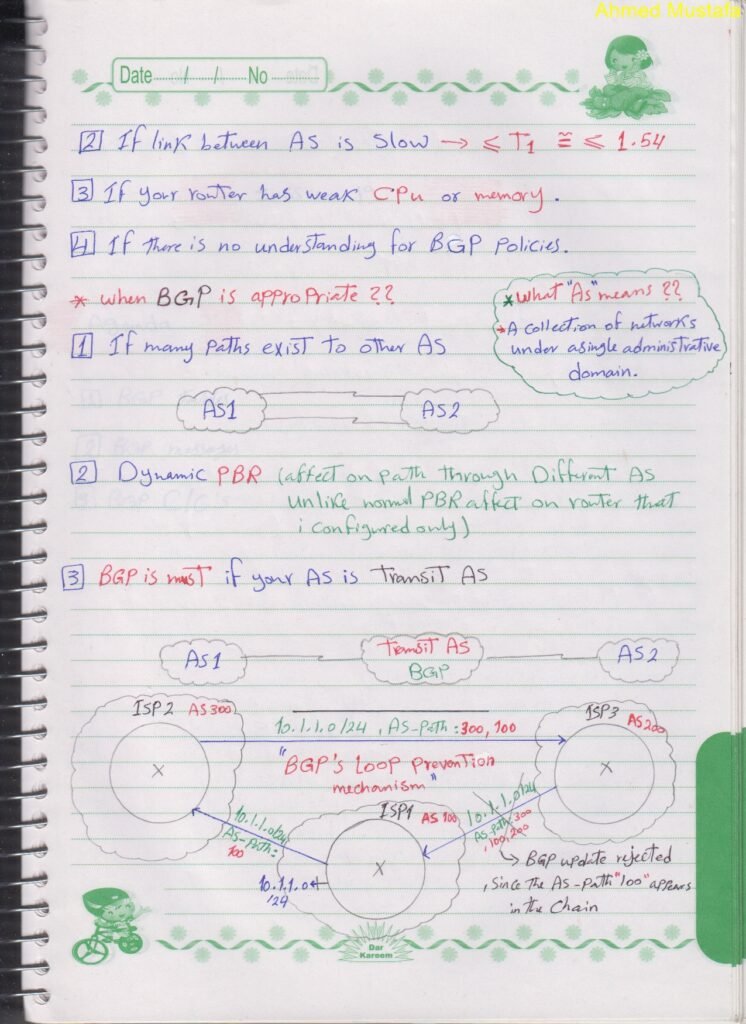 Ahmed Mustafa
Date / / No
[2] If link between AS is slow → ⩽ T1 ≅ ⩽ 1.54
[3] If your router has weak CPU or memory.
[4] If there is no understanding for BGP policies.
* when BGP is appropriate ??
* What "AS" means ??
→ A collection of networks
under a single administrative
domain.
[1] If many paths exist to other AS
AS1 AS2
[2] Dynamic PBR (affect on path through Different AS
unlike normal PBR affect on router that
i configured only)
[3] BGP is must if your AS is Transit AS
AS1 Transit AS AS2
BGP
ISP2 AS 300 ISP3 AS 200
10.1.1.0/24 , AS-path : 300, 100
"BGP's Loop Prevention
mechanism"
10.1.1.0/24
AS-path:
100
10.1.1.0/24
AS-path: 300
, 100, 200
ISP1 AS 100
10.1.1.0
/24
↳ BGP update rejected
, Since the AS-path "100" appears
in the chain
Dar
Kareem